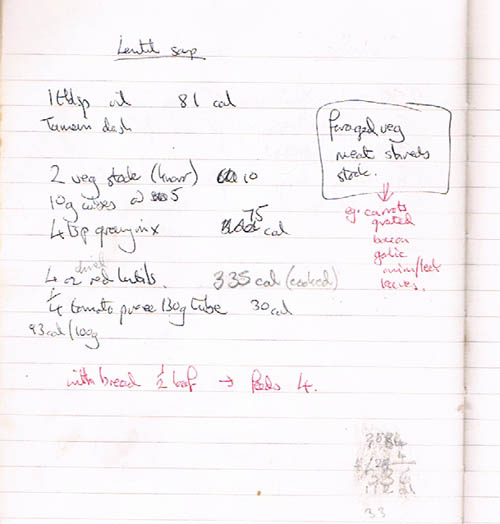 Lentil soup
1 tbsp oil 81 cal
Tamari dash
2 veg stock (knorr) 10
10g cubes @ 5
4 tsp gravy mix 75 cal
4 oz dried red lentils. 335 cal (cooked)
1/4 tomato puree 130g tube 30 cal
93 cal/100g
with bread 1/2 loaf → feeds 4.
Foraged veg
meat shreds
stock.
eg. carrots
grated
bacon
garlic
onion/leek
leaves.
33